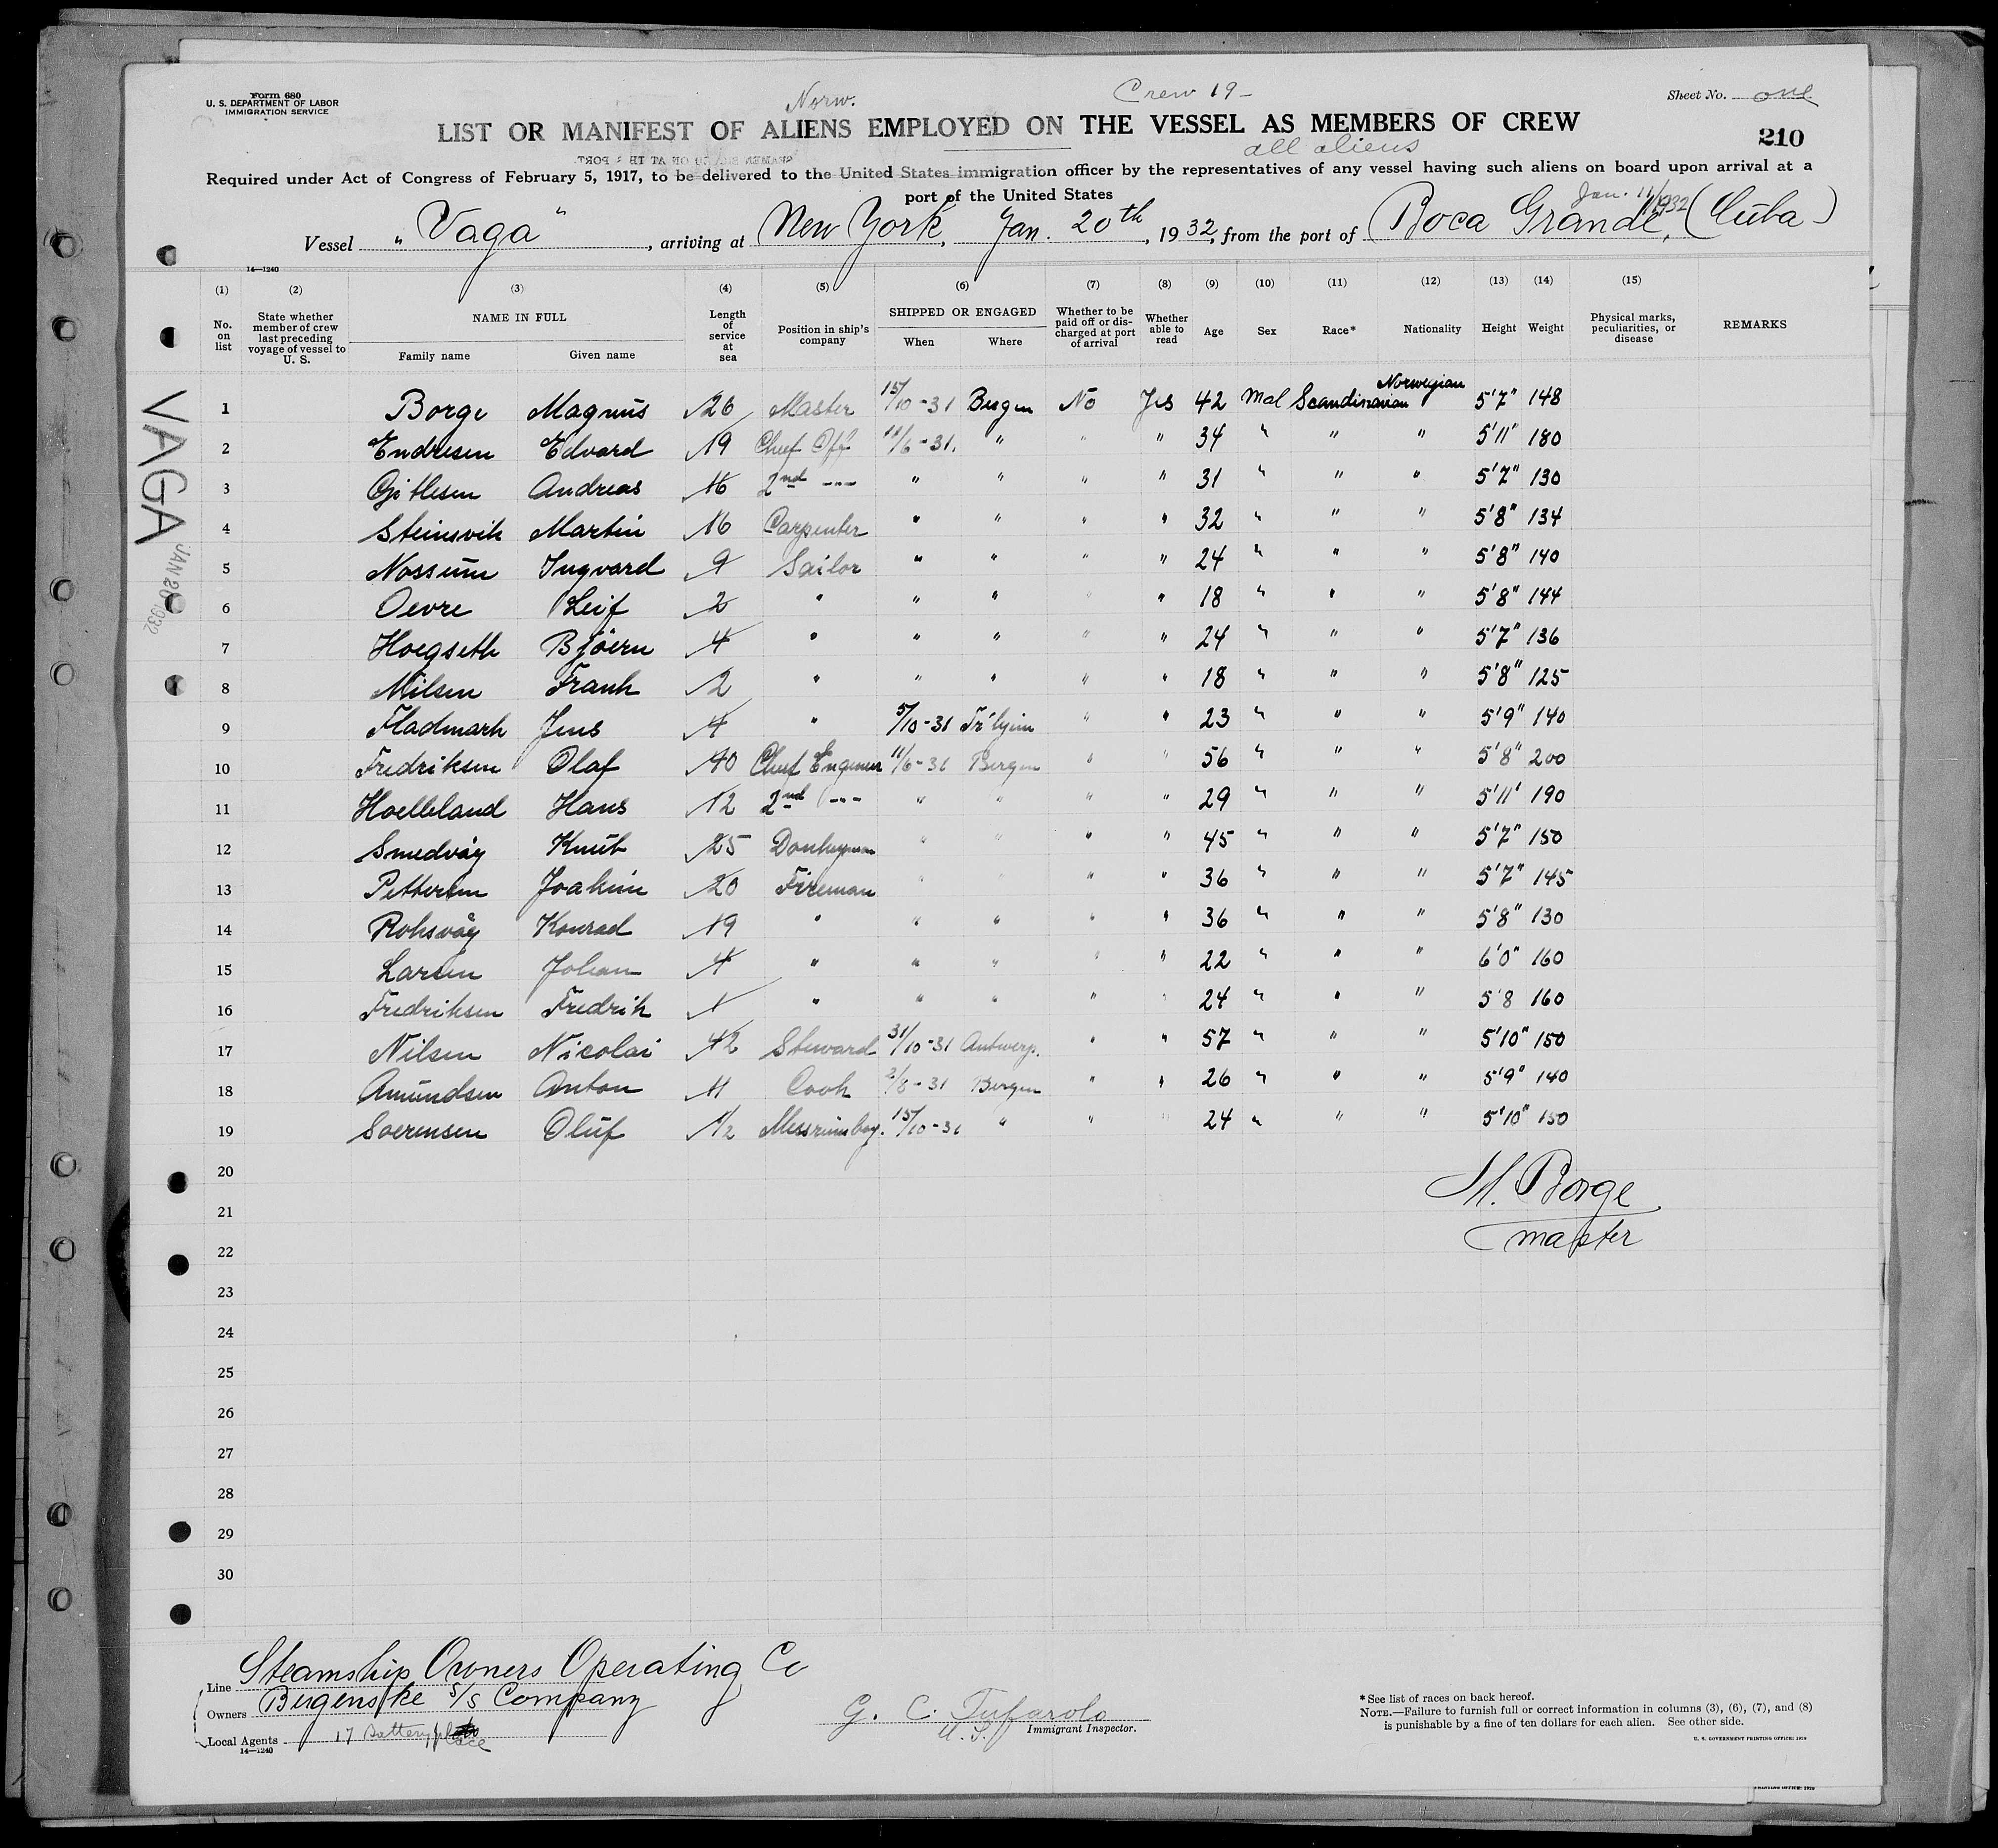 Form 680
U. S. DEPARTMENT OF LABOR
IMMIGRATION SERVICE
Norw.
Crew 19-
Sheet No. one
LIST OR MANIFEST OF ALIENS EMPLOYED ON THE VESSEL AS MEMBERS OF CREW
all aliens
210
Required under Act of Congress of February 5, 1917, to be delivered to the United States immigration officer by the representatives of any vessel having such aliens on board upon arrival at a
port of the United States
Jan. 11/1932
Vessel "Vaga", arriving at New York, Jan. 20th, 1932, from the port of Boca Grande, (Cuba)
14—1240
(1) (2) (3) (4) (5) (6) (7) (8) (9) (10) (11) (12) (13) (14) (15)
No. on list State whether member of crew last preceding voyage of vessel to U. S. NAME IN FULL Family name Given name Length of service at sea Position in ship's company SHIPPED OR ENGAGED When Where Whether to be paid off or discharged at port of arrival Whether able to read Age Sex Race* Nationality Height Weight Physical marks, peculiarities, or disease REMARKS
1 Borge Magnus 26 Master 15/10-31 Bergen No Yes 42 Mal Scandinavian Norwegian 5'7" 148
2 Endresen Edvard 19 Chief Off 11/6-31. " " " 34 " " " 5'11" 180
3 Gitlesen Andreas 16 2nd --- " " " " 31 " " " 5'7" 130
4 Steinsvik Martin 16 Carpenter " " " " 32 " " " 5'8" 134
5 Nossum Ingvard 9 Sailor " " " " 24 " " " 5'8" 140
6 Oevre Leif 2 " " " " " 18 " " " 5'8" 144
7 Hoegseth Bjoern 4 " " " " " 24 " " " 5'7" 136
8 Nilsen Frank 2 " " " " " 18 " " " 5'8" 125
9 Fladmark Jens 4 " 5/10-31 Tr'hjem " " 23 " " " 5'9" 140
10 Fredriksen Olaf 40 Chief Engineer 11/6-31 Bergen " " 56 " " " 5'8" 200
11 Hoelleland Hans 12 2nd --- " " " " 29 " " " 5'11' 190
12 Smedvåg Knut 25 Donkeyman " " " " 45 " " " 5'7" 150
13 Pettersen Joakim 20 Fireman " " " " 36 " " " 5'7" 145
14 Roksvåg Konrad 19 " " " " " 36 " " " 5'8" 130
15 Larsen Johan 4 " " " " " 22 " " " 6'0" 160
16 Fredriksen Fredrik 1 " " " " " 24 " " " 5'8 160
17 Nilsen Nicolai 42 Steward 31/10-31 Antwerp. " " 57 " " " 5'10" 150
18 Amundsen Anton 11 Cook 3/8-31 Bergen " " 26 " " " 5'9" 140
19 Soerensen Oluf 1/2 Messroomboy. 15/10-31 " " " 24 " " " 5'10" 150
20
21
22
23
24
25
26
27
28
29
30
M. Borge
master
VAGA
JAN 20 1932
Line Steamship Owners Operating Co
Owners Bergenske S/S Company
Local Agents 17 Battery place
14—1240
G. C. Tufarolo
U.S. Immigrant Inspector.
*See list of races on back hereof.
NOTE.—Failure to furnish full or correct information in columns (3), (6), (7), and (8)
is punishable by a fine of ten dollars for each alien. See other side.
U. S. GOVERNMENT PRINTING OFFICE: 1929